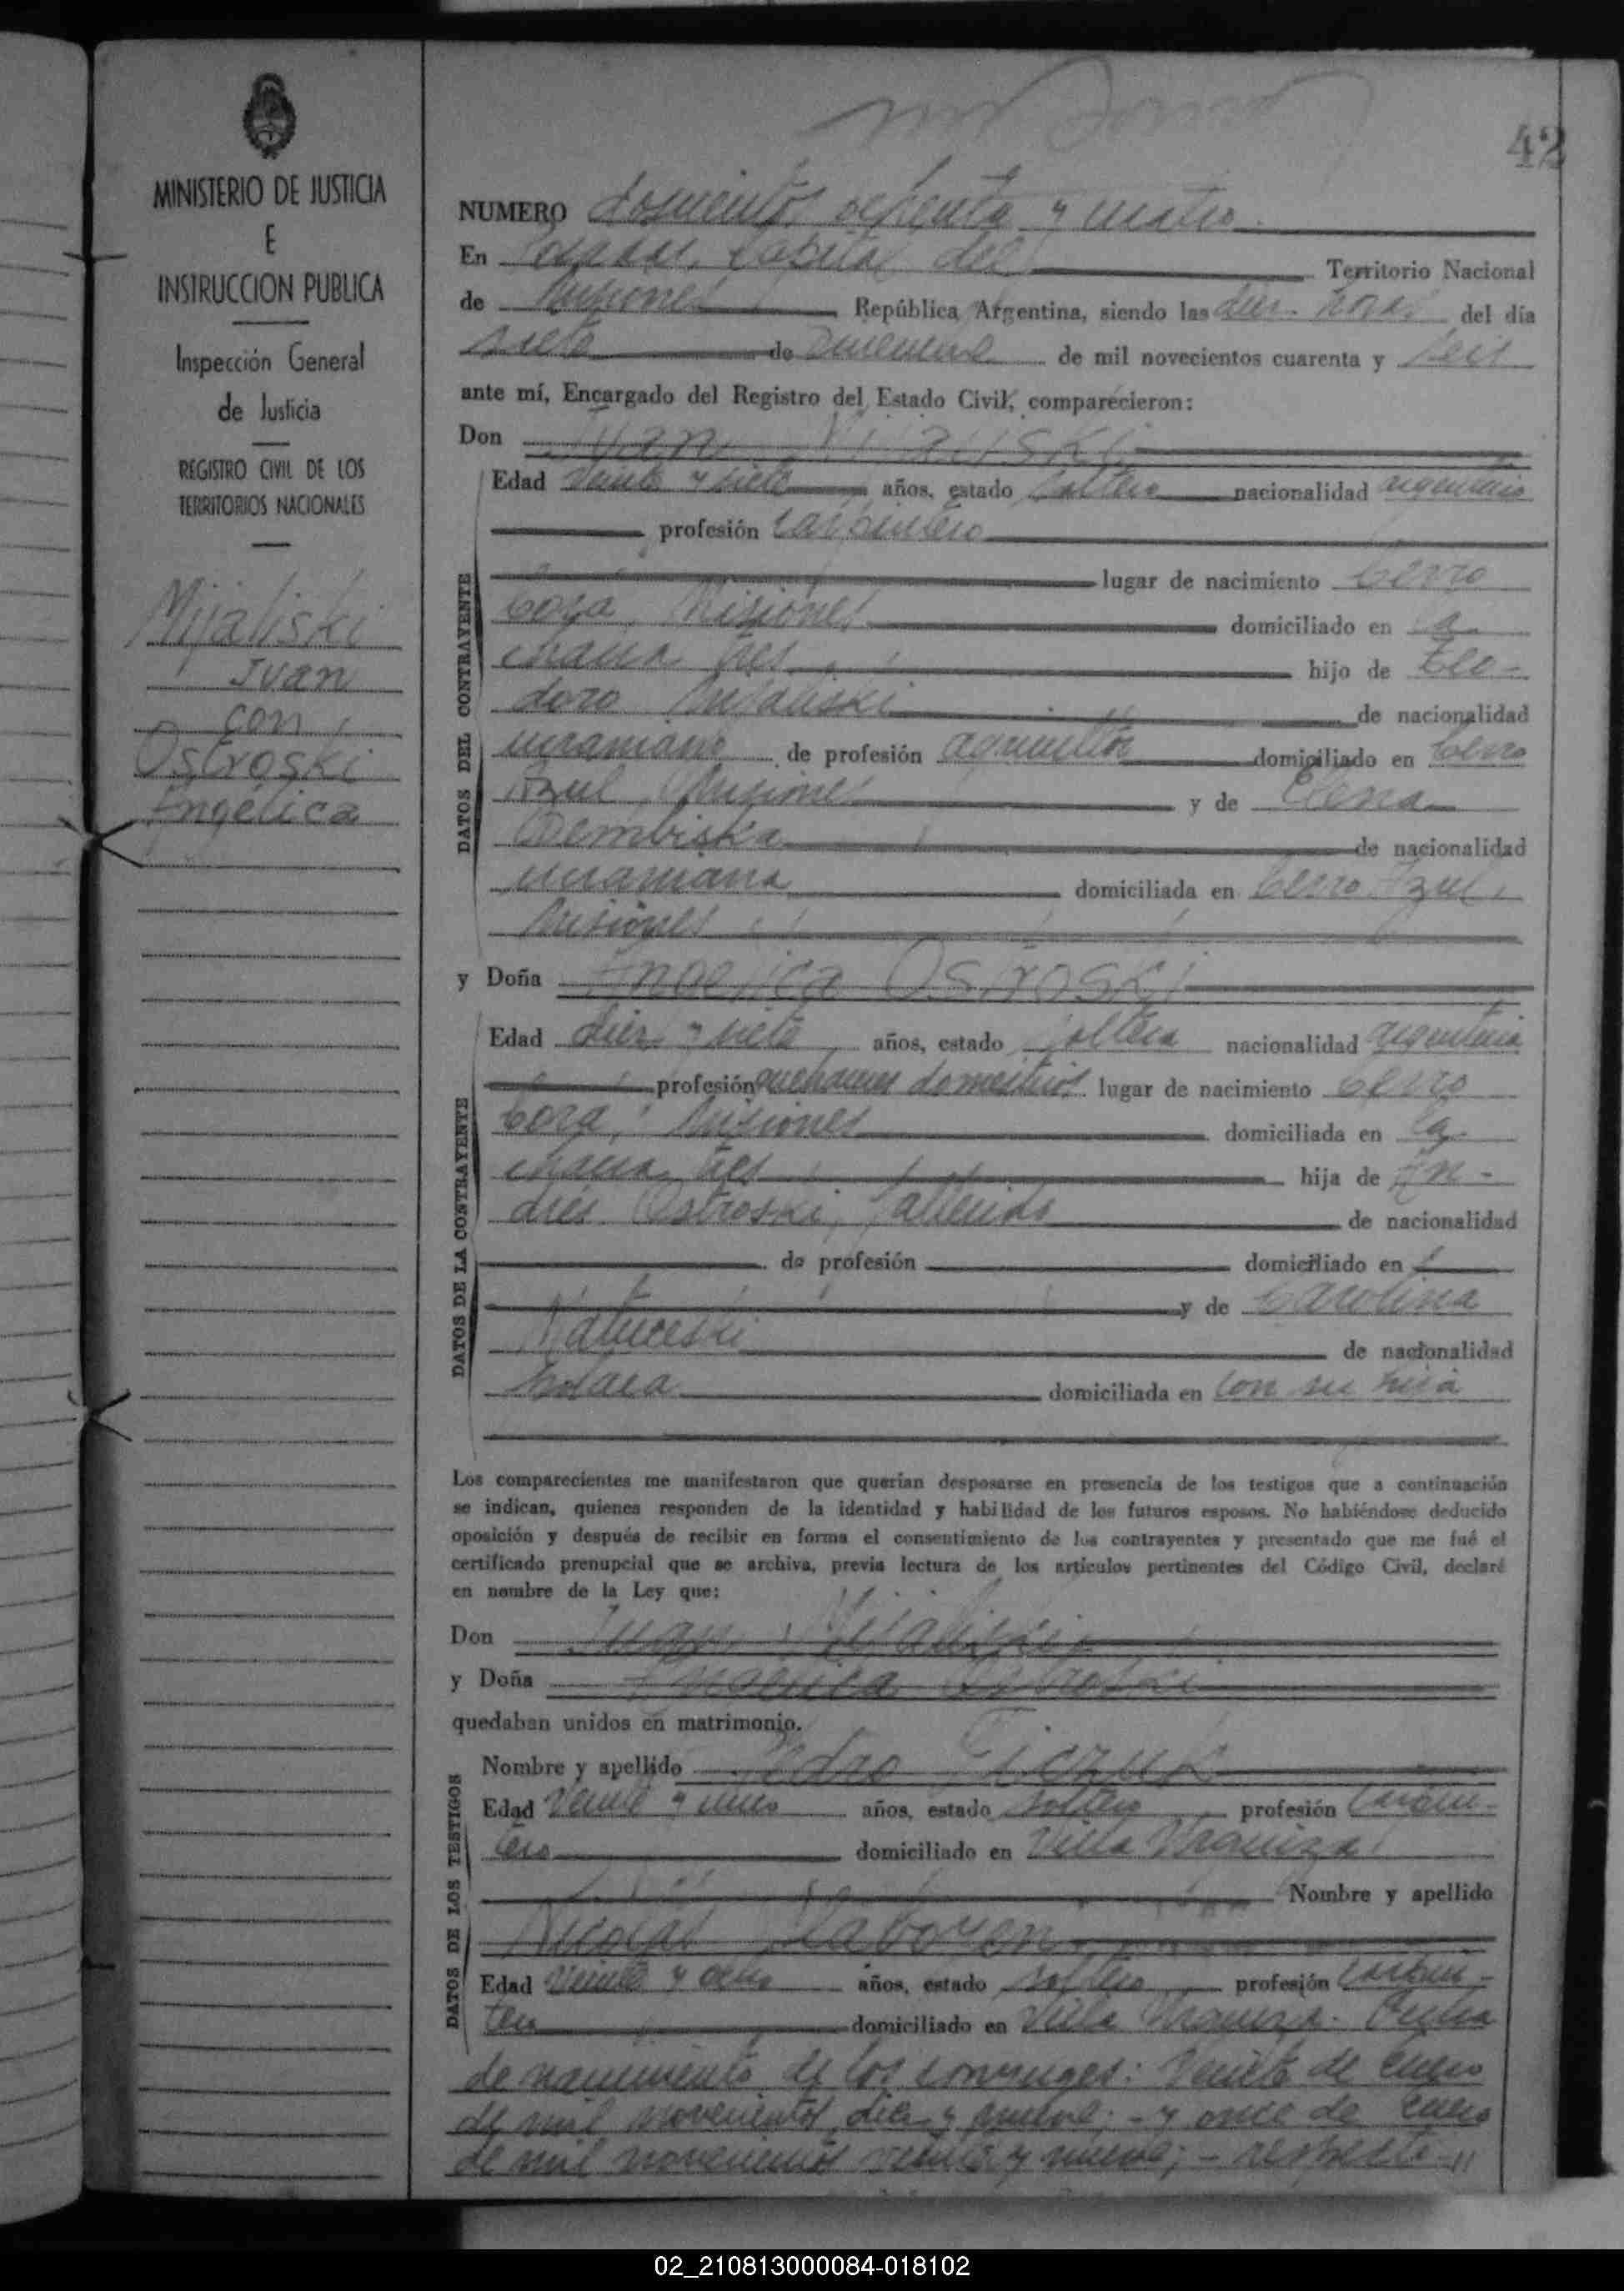 42
MINISTERIO DE JUSTICIA
E
INSTRUCCION PUBLICA
Inspección General
de Justicia
REGISTRO CIVIL DE LOS
TERRITORIOS NACIONALES
Mijaliski
Juan
con
Ostroski
Angélica
NUMERO doscientos setenta y cuatro
En Posadas, Capital del Territorio Nacional
de Misiones República Argentina, siendo las diez horas del día
siete de de mil novecientos cuarenta y seis
ante mí, Encargado del Registro del Estado Civil, comparecieron:
Don Juan Mijaliski
Edad veinte y siete años, estado soltero nacionalidad argentino
profesión carpintero
DATOS DEL CONTRAYENTE
lugar de nacimiento Cerro
Corá, Misiones domiciliado en la
chacra tres hijo de Teo-
doro Mijaliski de nacionalidad
ucraniano de profesión agricultor domiciliado en Cerro
Azul, Misiones y de Elena
Dembiska de nacionalidad
ucraniana domiciliada en Cerro Azul,
Misiones
y Doña Angelica Ostroski
Edad diez y siete años, estado soltera nacionalidad argentina
profesión quehaceres domesticos lugar de nacimiento Cerro
DATOS DE LA CONTRAYENTE
Corá, Misiones domiciliada en la
chacra tres hija de An-
drés Ostroski, fallecido de nacionalidad
de profesión domiciliado en
y de Carolina
de nacionalidad
polaca domiciliada en con su hija
Los comparecientes me manifestaron que querían desposarse en presencia de los testigos que a continuación
se indican, quienes responden de la identidad y habilidad de los futuros esposos. No habiéndose deducido
oposición y después de recibir en forma el consentimiento de los contrayentes y presentado que me fué el
certificado prenupcial que se archiva, previa lectura de los artículos pertinentes del Código Civil, declaré
en nombre de la Ley que:
Don Juan Mijaliski
y Doña Angelica Ostroski
quedaban unidos en matrimonio.
DATOS DE LOS TESTIGOS
Nombre y apellido Pedro
Edad veinte y años, estado soltero profesión carpin-
tero domiciliado en Villa Urquiza
Nombre y apellido
Nicolás
Edad veinte y ocho años, estado soltero profesión carpin-
tero domiciliado en Villa Urquiza. Fecha
de nacimiento de los conyuges: veinte de enero
de mil novecientos diez y nueve; - y once de enero
de mil novecientos veinte y nueve; - respecti-//
02_210813000084-018102